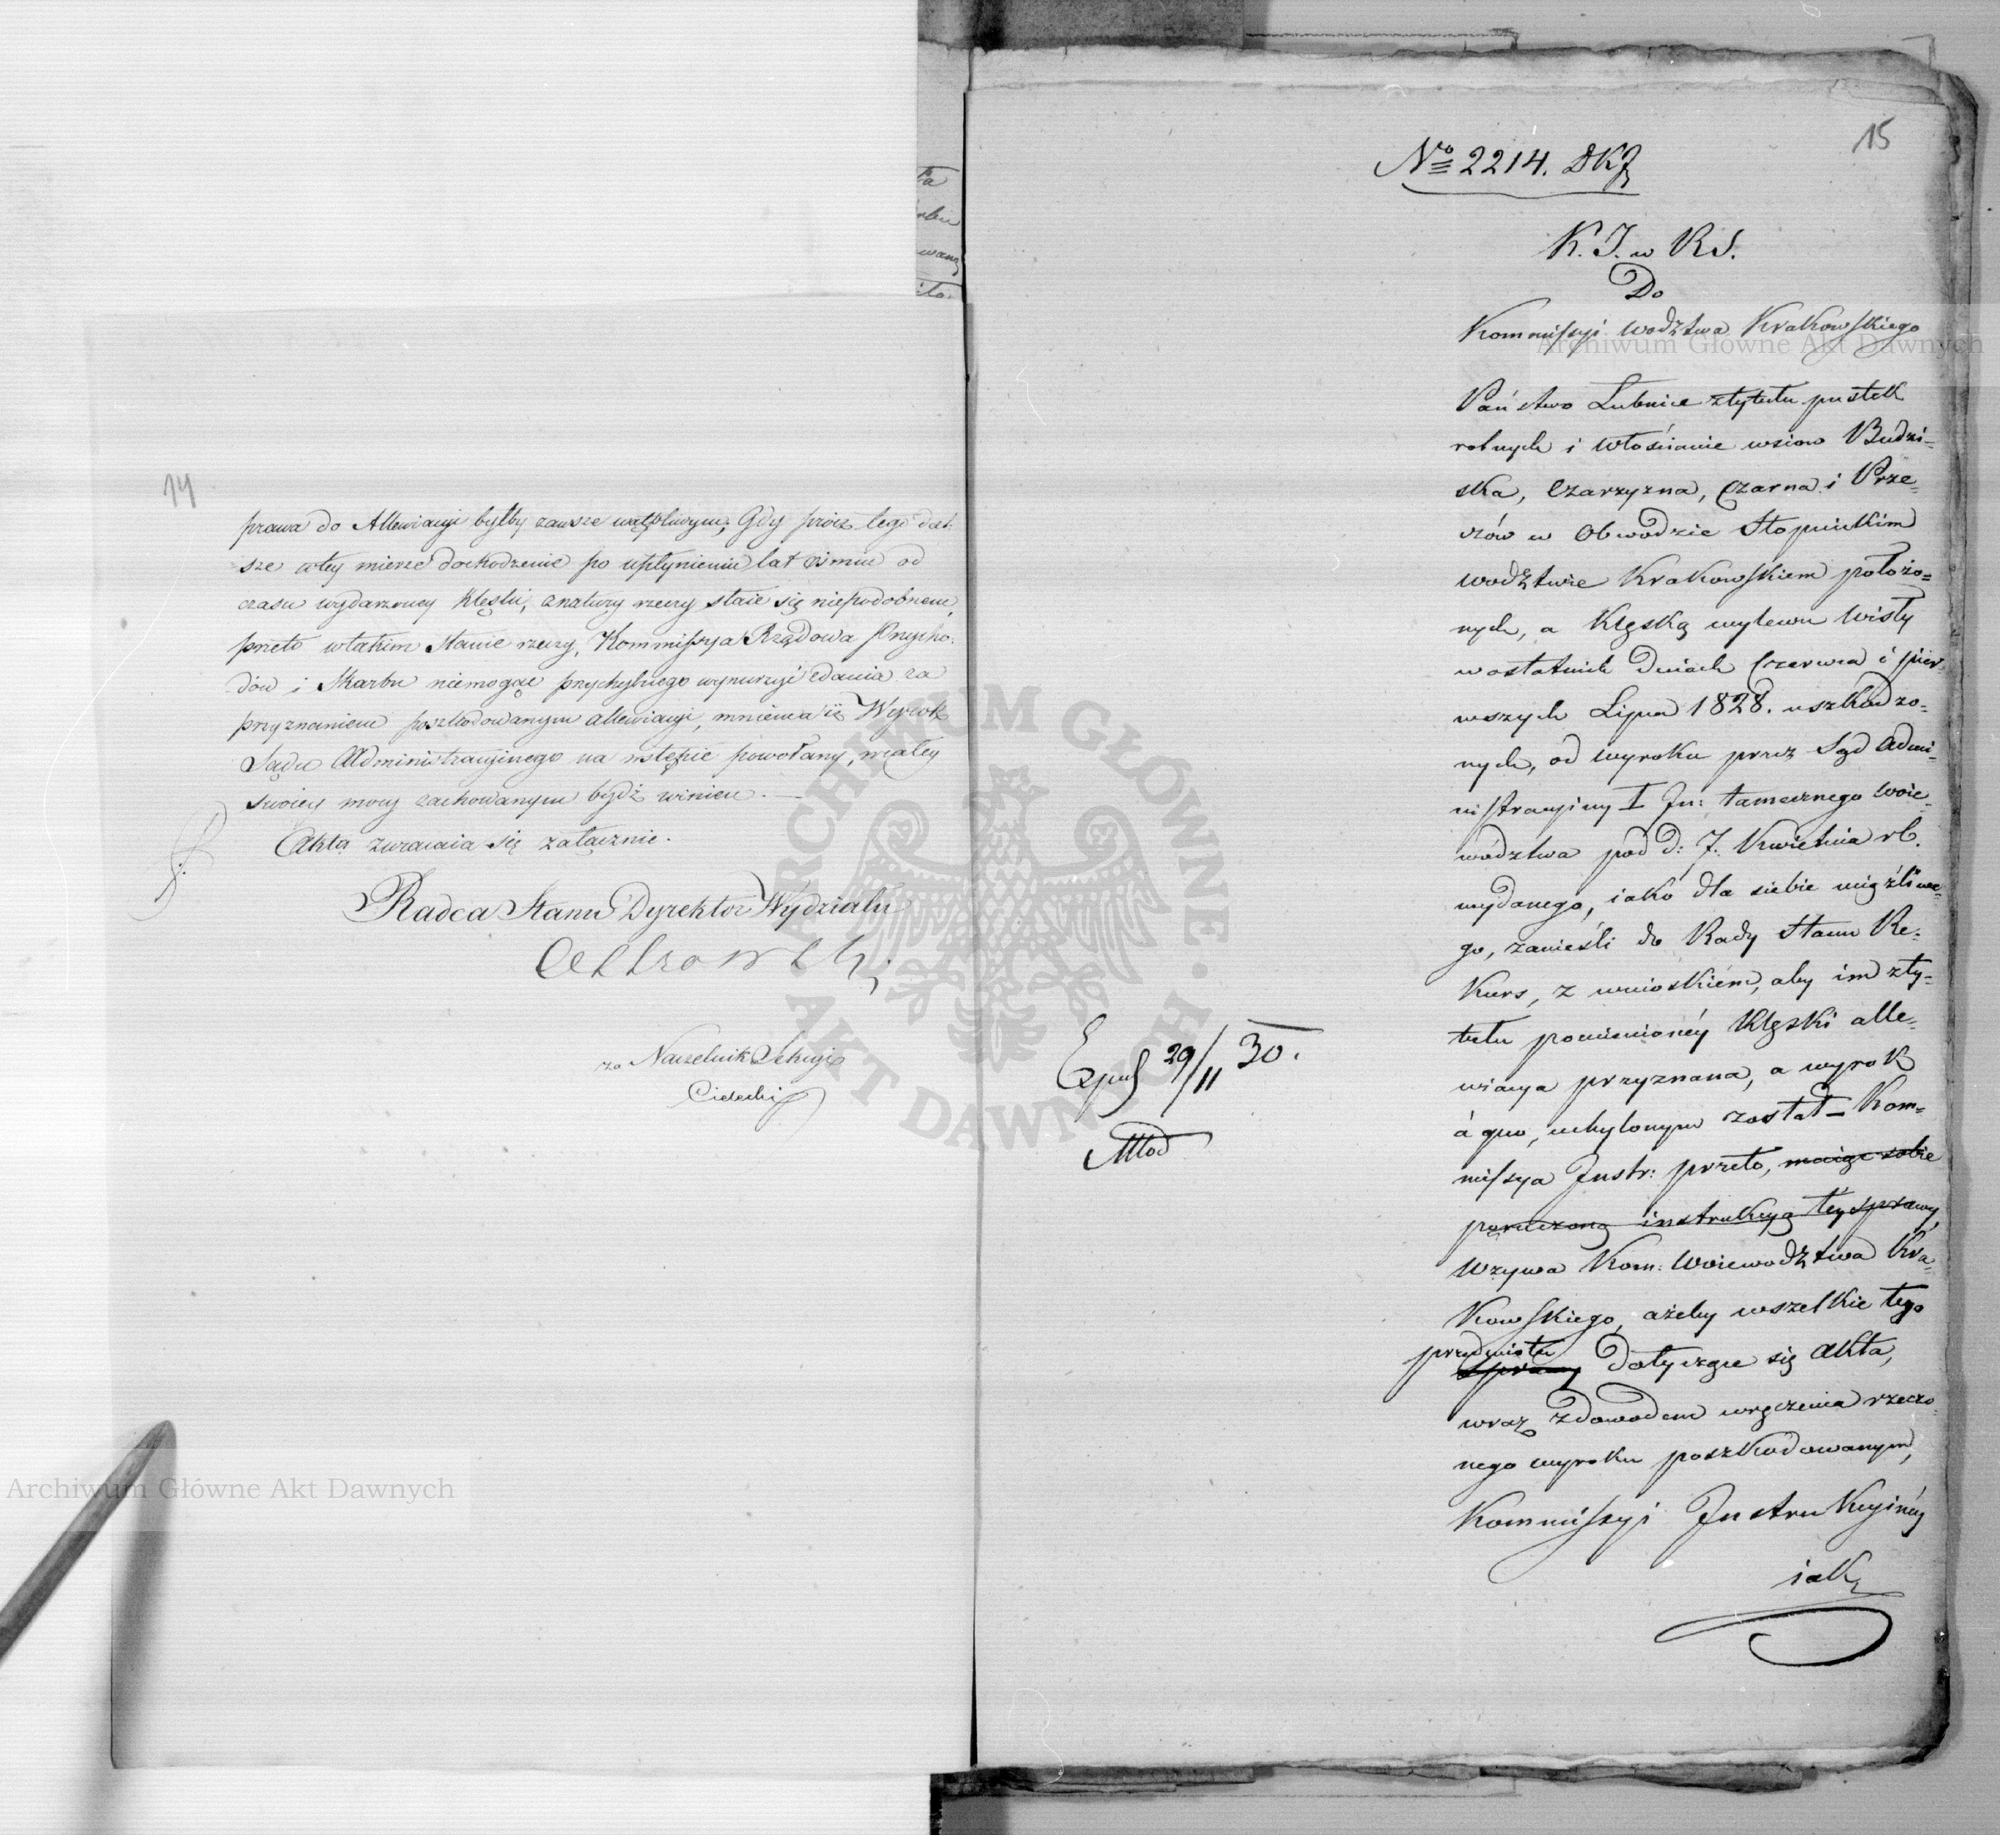 14
prawa do Allewiacyi byłby zawsze wątpliwym; Gdy prócz tego dal-
sze w tey mierze dochodzenie po upłynieniu lat ośmiu od
czasu wydarzoney klęski, z natury rzeczy staie się niepodobnem,
przeto w takim stanie rzeczy, Kommissya Rządowa Przycho-
dów i Skarbu niemogąc przychylnego wynurzyć zdania za
przyznaniem poszkodowanym allewiacyi, mniema iż Wyrok
Sądu Administracyinego na wstępie powołany, w całey
swoiey mocy zachowanym bydź winien. —
Akta zwracaią się załącznie.
Radca Stanu Dyrektor Wydziału
za Naczelnik Sekcyi
Cielecki
15
No 2214. DKJ
K. I. w RS.
Do
Kommissyi wodztwa Krakowskiego
Państwo Łubnice z tytułu pustek
rolnych i włościanie wsiow Budzi-
ska, Czarzyzna, Czarna i Prze-
czów w Obwodzie Stopnickim
wodztwie Krakowskiem położo-
nych, a klęską wylewu Wisły
w ostatnich dniach Czerwca i pier-
wszych Lipca 1828. uszkodzo-
nych, od wyroku przez Sąd Admi-
nistracyiny I In: tamecznego Woie-
wództwa pod d: 7. Kwietnia rb.
wydanego, iako dla siebie uciążliwe-
go, zanieśli do Rady Stanu Re-
kurs, z wnioskiem, aby im z ty-
tułu pomienionéy klęski alle-
wiacya przyznana, a wyrok
à quo, uchylonym został – Kom-
missya Instr: przeto, maiąc sobie
poruczoną instrukcyą téy sprawy,
wzywa Kom: Woiewodztwa Kra-
kowskiego, ażeby wszelkie tego
przedmiotu
sprawy dotyczące się akta,
wraz z dowodem wręczenia rzeczo-
nego wyroku poszkodowanym,
Kommissyi Instrukcyinéy
iak
Exped 29/11 30.
Młod
Archiwum Główne Akt Dawnych
Archiwum Główne Akt Dawnych
ARCHIWUM GŁÓWNE AKT DAWNYCH